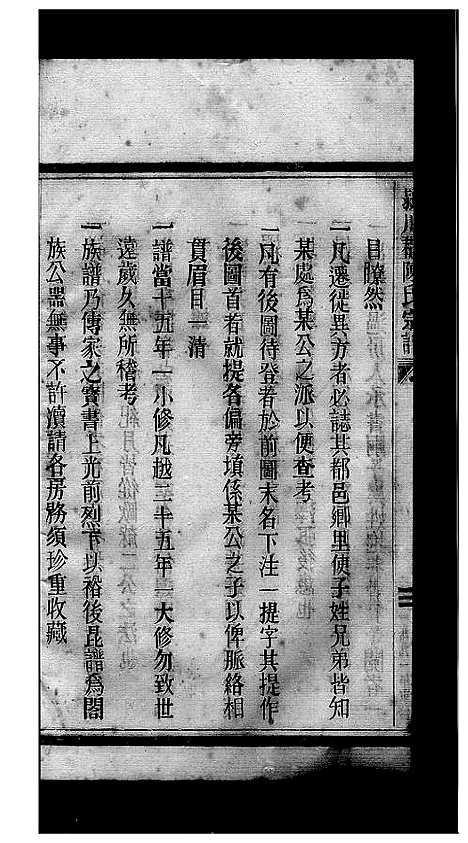 川 陳氏宗譜
目瞭然
一凡遷徙異方者必誌其都邑鄉里使子姓兄弟皆知
某處為某公之派以便查考
一凡有後圖待登者於前圖末名下注一提字其提作
後圖首者就提各偏旁填係某公之子以俾脈絡相
貫眉目一清
一譜當十五年一小修凡越三十五年一大修勿致世
遠歲久無所稽考
一族譜乃傳家之寶書上光前烈下以裕後昆譜為闔
族公器無事不許瀆請各房務須珍重收藏